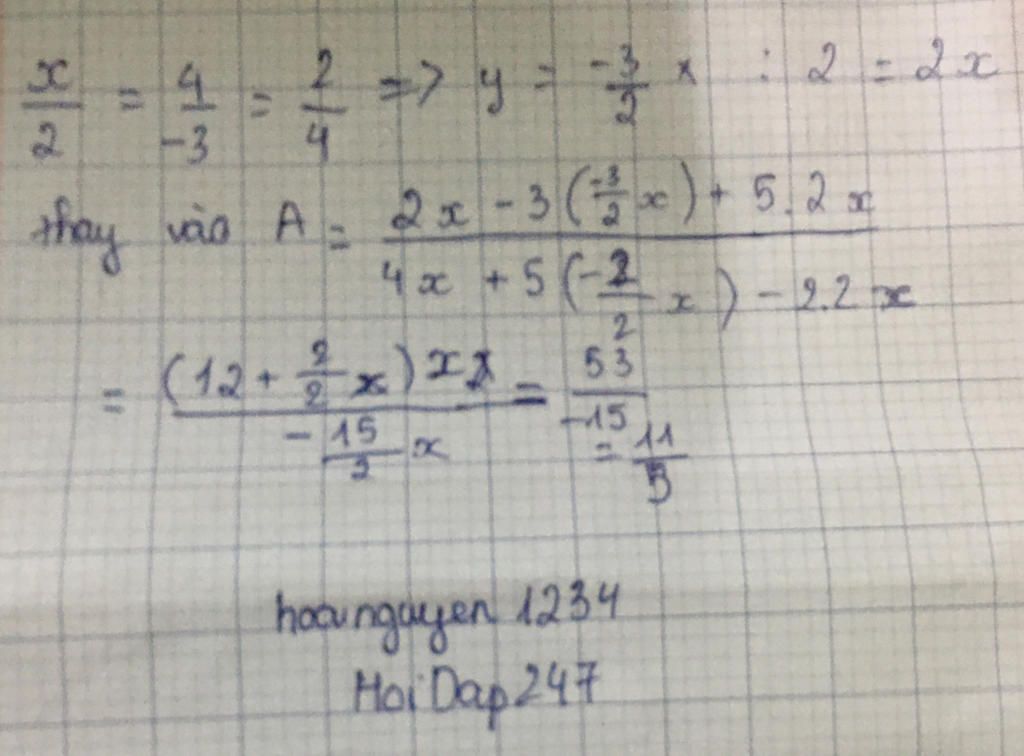 x/2 = y/-3 = 2/4 => y = -3/2 x ; 2 = 2x
thay vào A = (2x - 3(-3/2 x) + 5.2x)/(4x + 5(-3/2 x) - 2.2x)
= ((12 + 9/2 x) x)/(-15/2 x) = 53/-15
= 11/5
hoanguyen 1234
HoiDap247